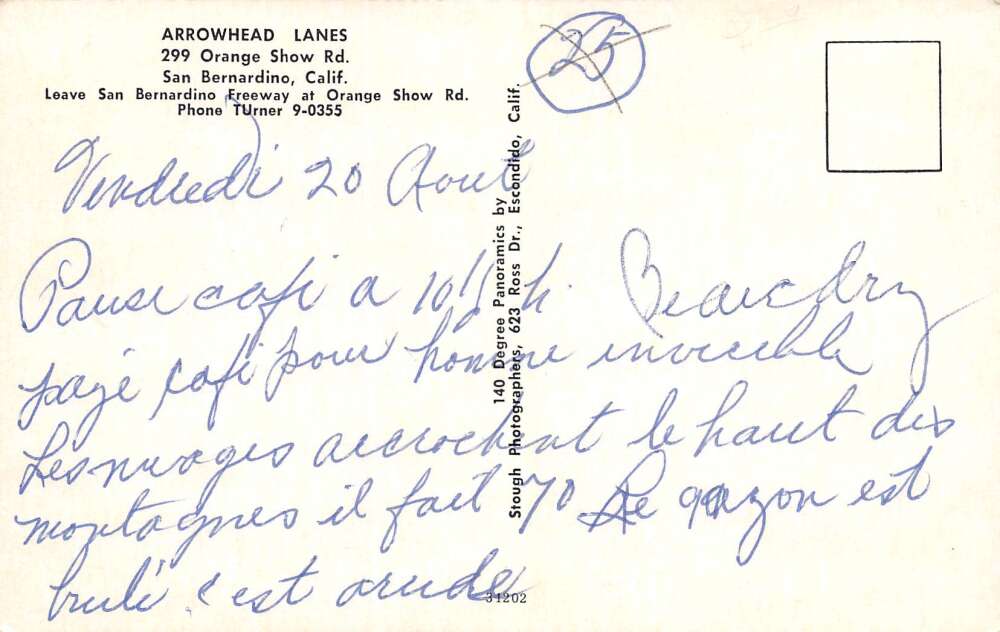 ARROWHEAD LANES
299 Orange Show Rd.
San Bernardino, Calif.
Leave San Bernardino Freeway at Orange Show Rd.
Phone TUrner 9-0355
25
Vendredi 20 Aout
Pause cafi a 10 h. Beaudry
payé cafi pour homme invicible
Les nuages accrochent le haut des
montagnes il fait 70 Le gazon est
brulé c'est aride
140 Degree Panoramics by
Stough Photographers, 623 Ross Dr., Escondido, Calif.
31202